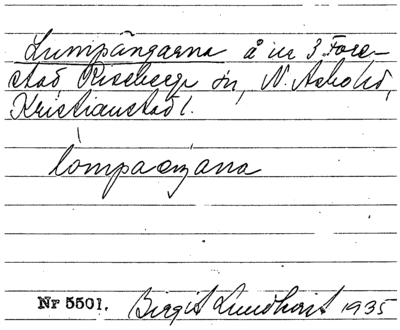 Lumpängarna å nr 3 Fore-
stad Riseberga sn, N. Åsbo hd,
Kristianstad l.
lòmpaeŋana
Nr 5501. Birgit Lundkvist 1935